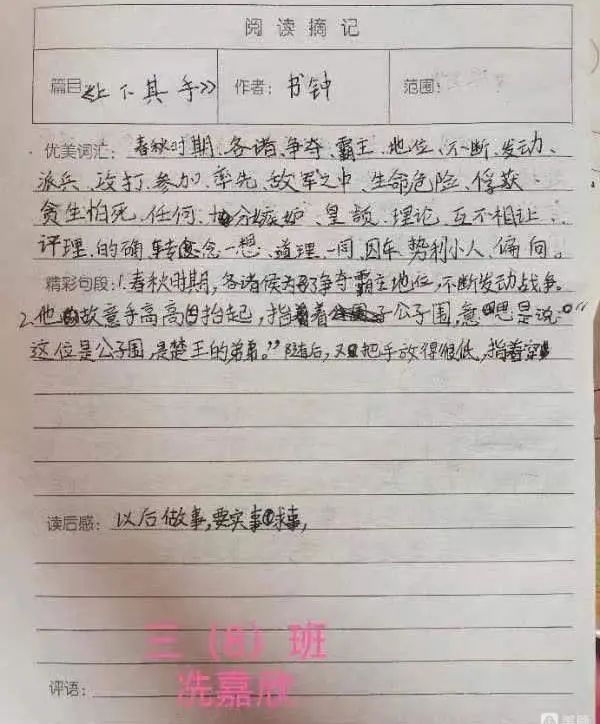 阅读摘记
篇目《上下其手》 作者:书钟 范围:
优美词汇:春秋时期、各诸、争夺、霸王、地位、不断、发动、
派兵、攻打、参加、率先、敌军之中、生命危险、俘获、
贪生怕死、任何、十分嫉妒、皇颉、理论、互不相让、
评理、的确、转念一想、道理、一同、因车、势利小人、偏向。
精彩句段:1.春秋时期,各诸侯为了争夺霸主地位,不断发动战争。
2.他故意手高高抬起,指着公子围,意思是说:“
这位是公子围,是楚王的弟弟。”随后,又把手放得很低,指着穿
读后感:以后做事,要实事求事,
三(8)班
冼嘉欣
评语: